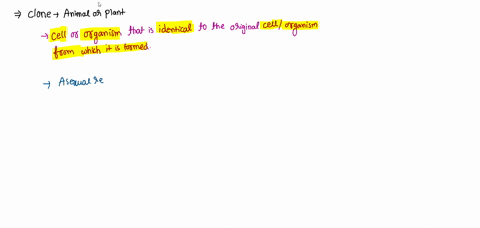 ⇒ Clone → Animal or plant
→ Cell or organism that is identical to the original cell/organism
from which it is formed.
→ Asexual re